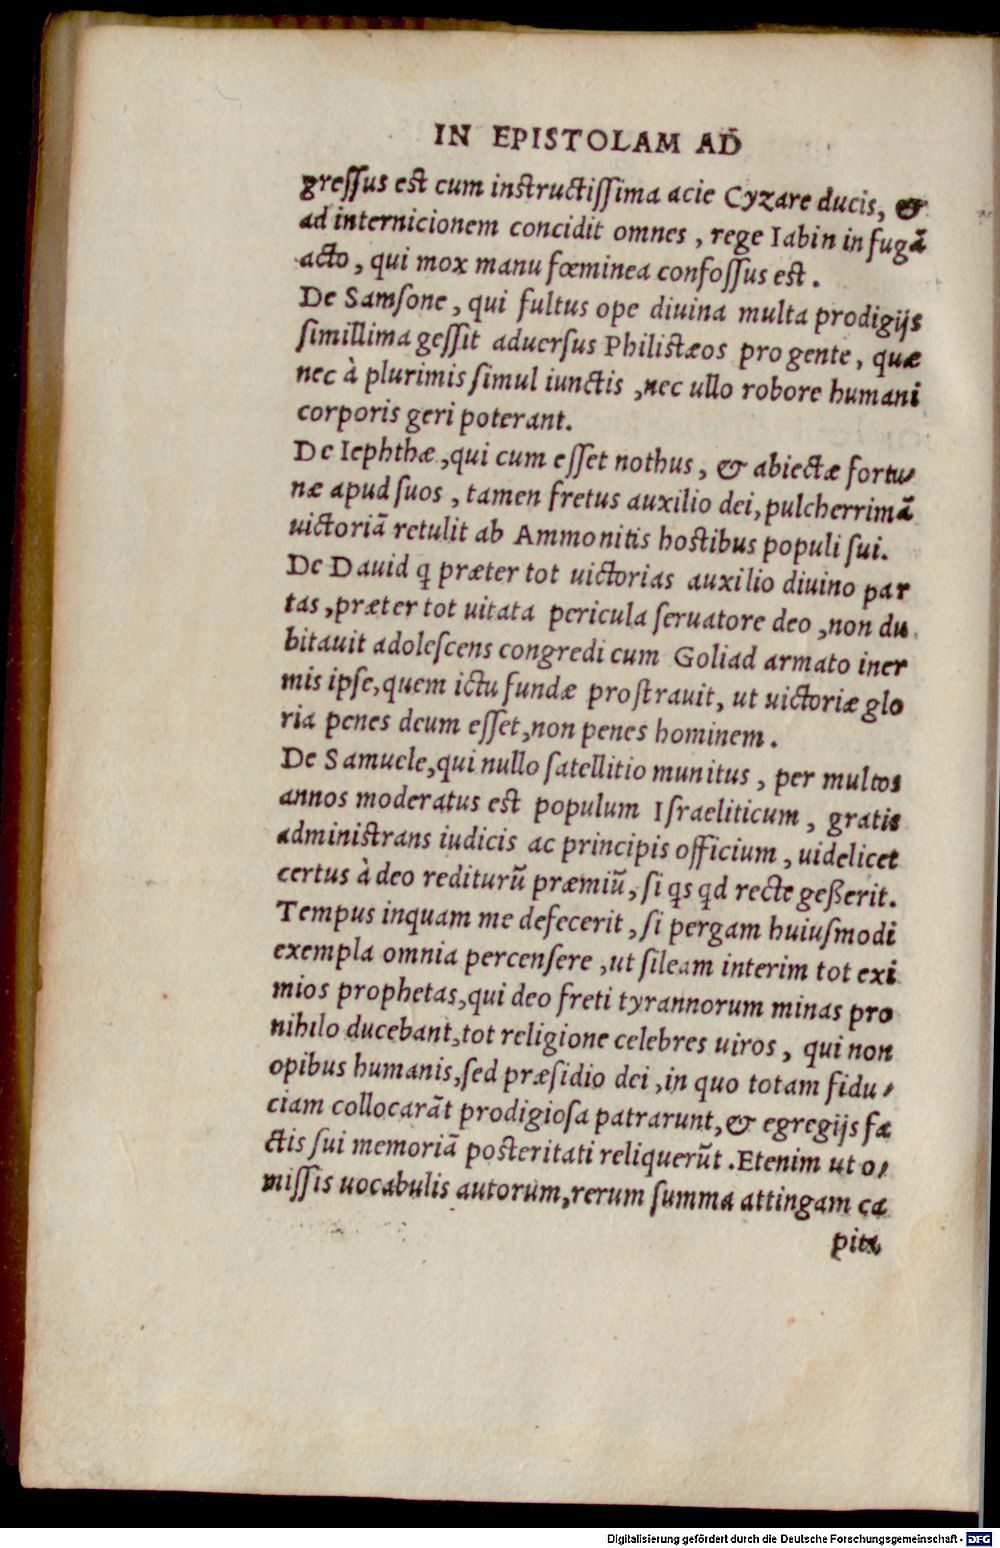 IN EPISTOLAM AD
greſſus est cum instructiſſima acie Cyzare ducis, &
ad internicionem concidit omnes, rege Iabin in fugã
acto, qui mox manu fœminea confoſſus est.
De Samſone, qui fultus ope diuina multa prodigijs
ſimillima geſſit aduerſus Philistæos pro gente, quæ
nec à plurimis ſimul iunctis, nec ullo robore humani
corporis geri poterant.
De Iephthæ, qui cum eſſet nothus, & abiectæ fortu-
næ apud ſuos, tamen fretus auxilio dei, pulcherrimã
uictoriã retulit ab Ammonitis hostibus populi ſui.
De Dauid q præter tot uictorias auxilio diuino par
tas, præter tot uitata pericula ſeruatore deo, non du
bitauit adoleſcens congredi cum Goliad armato iner
mis ipſe, quem ictu fundæ proſtrauit, ut uictoriæ glo
ria penes deum eſſet, non penes hominem.
De Samuele, qui nullo ſatellitio munitus, per multos
annos moderatus est populum Iſraeliticum, gratis
administrans iudicis ac principis officium, uidelicet
certus à deo rediturũ præmiũ, ſi qs qd recte geßerit.
Tempus inquam me defecerit, ſi pergam huiuſmodi
exempla omnia percenſere, ut ſileam interim tot exi
mios prophetas, qui deo freti tyrannorum minas pro
nihilo ducebant, tot religione celebres uiros, qui non
opibus humanis, ſed præſidio dei, in quo totam fidu-
ciam collocarãt prodigioſa patrarunt, & egregijs fa
ctis ſui memoriã posteritati reliquerũt. Etenim ut o-
miſſis uocabulis autorum, rerum ſumma attingam ca
pita
Digitalisierung gefördert durch die Deutsche Forschungsgemeinschaft - DFG